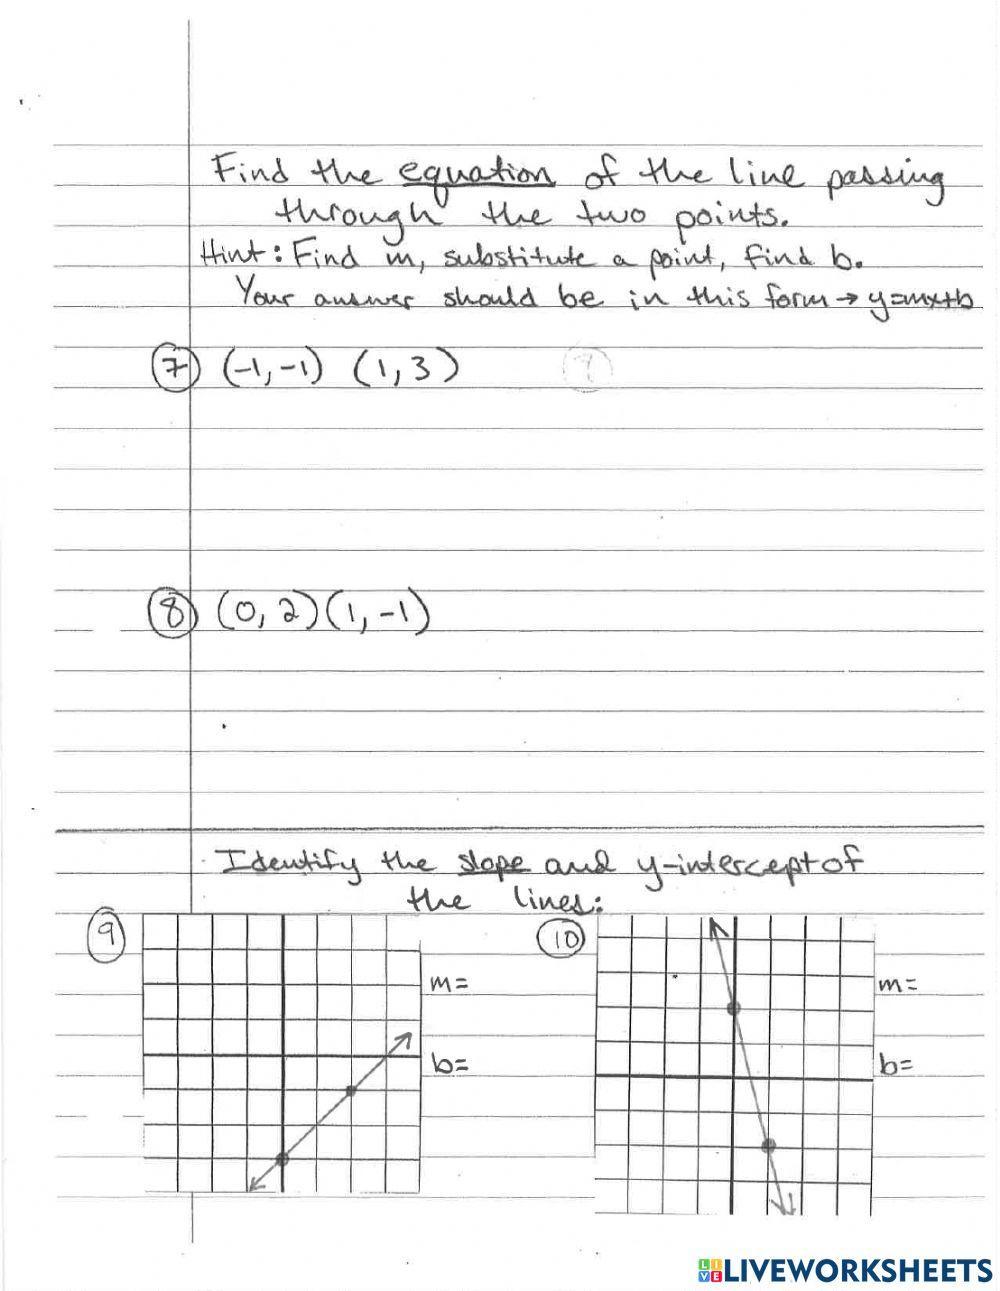 Find the equation of the line passing
through the two points.
Hint: Find m, substitute a point, find b.
Your answer should be in this form → y=mx+b
7 (-1,-1) (1,3)
8 (0, 2)(1, -1)
Identify the slope and y-intercept of
the lines:
9
m=
b=
10
m=
b=
LIVEWORKSHEETS